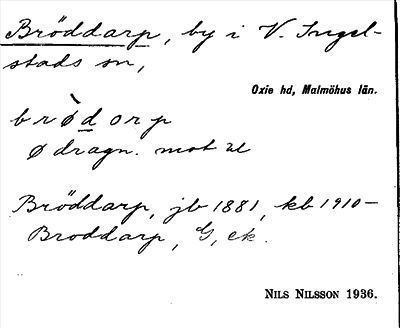 Bröddarp, by i V. Ingel-
stads sn,
Oxie hd, Malmöhus län.
brø̀dorp
ø dragn. mot
Bröddarp, jb 1881, kb 1910-
Broddarp, G, ek.
NILS NILSSON 1936.